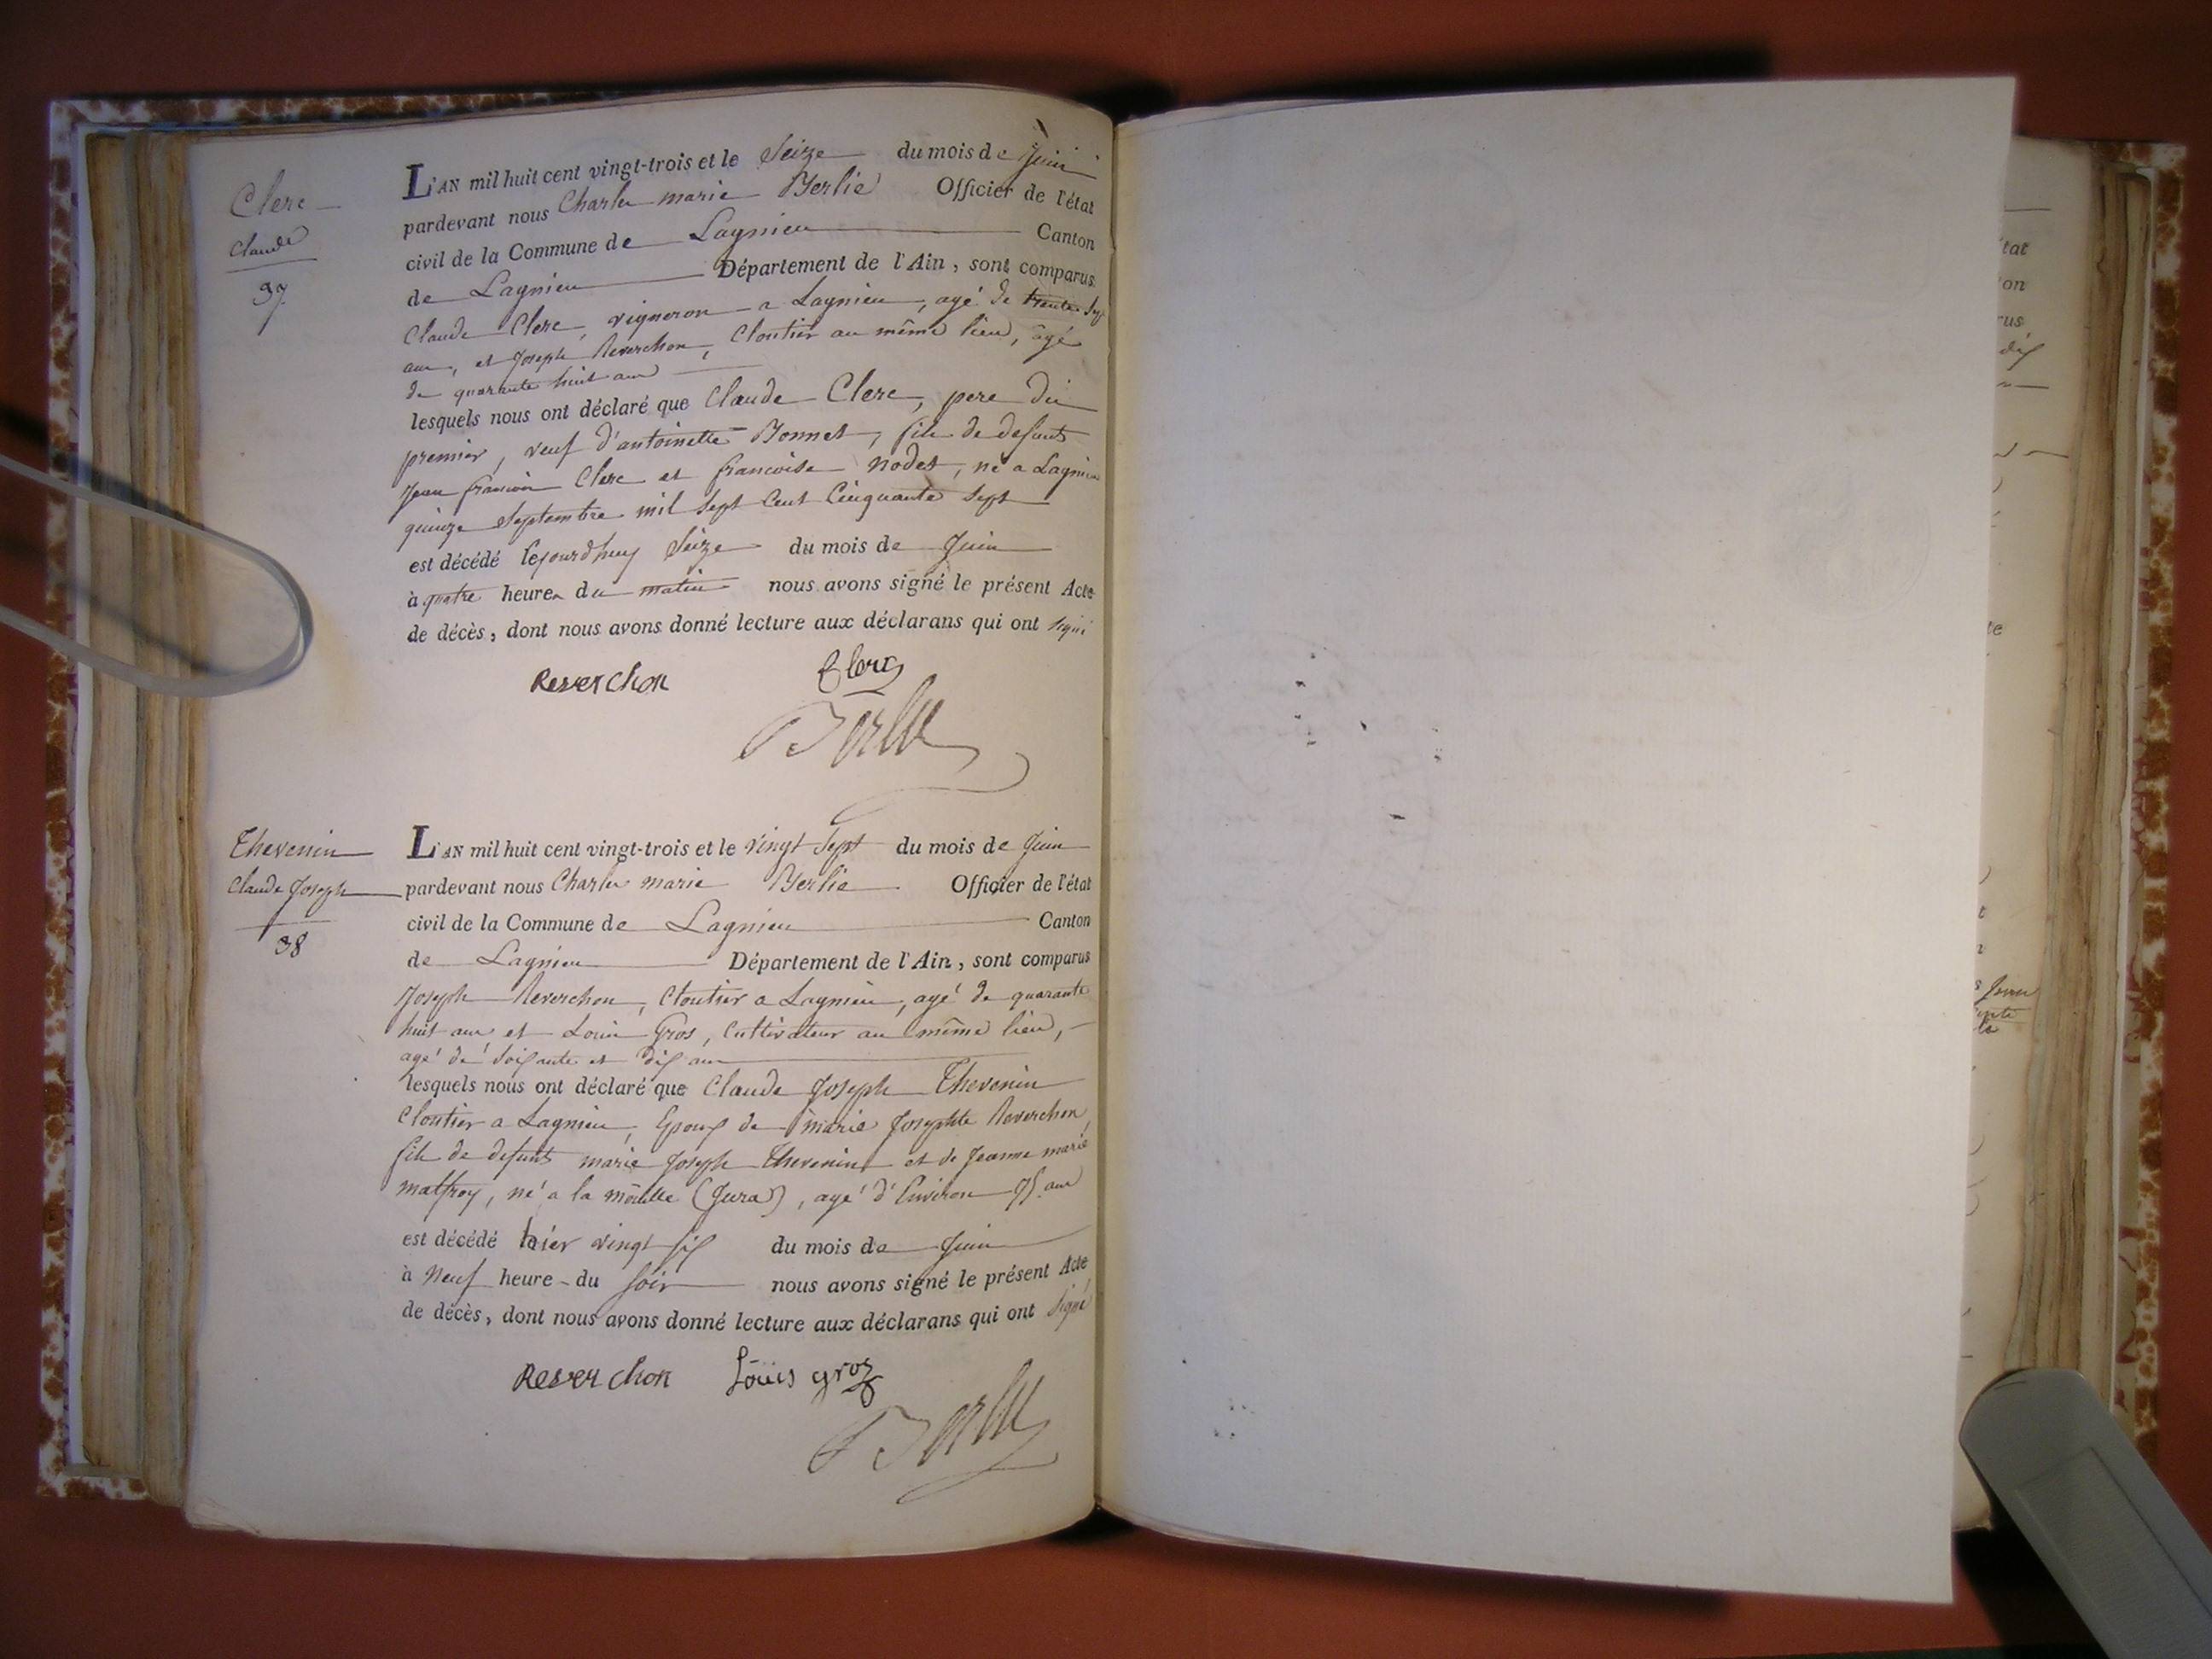 Clerc
Claude
37
L'AN mil huit cent vingt-trois et le Seize du mois de Juin
pardevant nous Charles marie Berlie Officier de l'état
civil de la Commune de Lagnieu Canton
de Lagnieu Département de l'Ain, sont comparus
Claude Clerc, vigneron a Lagnieu, agé de trente Sept
ans, et Joseph Reverchon, Cloutier au même lieu, âgé
de quarante huit ans
lesquels nous ont déclaré que Claude Clerc, pere du
premier, veuf d'antoinette Bonnet, fils de defunts
Jean francois Clerc et francoise nodet, né a Lagnieu
quinze Septembre mil Sept Cent Cinquante Sept
est décédé cejourdhuy Seize du mois de Juin
à quatre heures du matin nous avons signé le présent Acte
de décès, dont nous avons donné lecture aux déclarans qui ont signé
Reverchon Clerc
Berlie
Thevenin
Claude Joseph
38
L'AN mil huit cent vingt-trois et le vingt Sept du mois de Juin
pardevant nous Charles marie Berlie Officier de l'état
civil de la Commune de Lagnieu Canton
de Lagnieu Département de l'Ain, sont comparus
Joseph Reverchon, Cloutier a Lagnieu, agé de quarante
huit ans et Louis Gros, Cultivateur au même lieu,
agé de Soixante et dix ans
lesquels nous ont déclaré que Claude Joseph Thevenin
Cloutier a Lagnieu, Epoux de marie Josephte Reverchon,
fils de defunts marie Joseph Thevenin et de Jeanne marie
malfroy, né a la mouille (Jura), agé d'Environ ans
est décédé hier vingt six du mois de Juin
à Neuf heure du soir nous avons signé le présent Acte
de décès, dont nous avons donné lecture aux déclarans qui ont Signé
Reverchon Loüis gros
Berlie